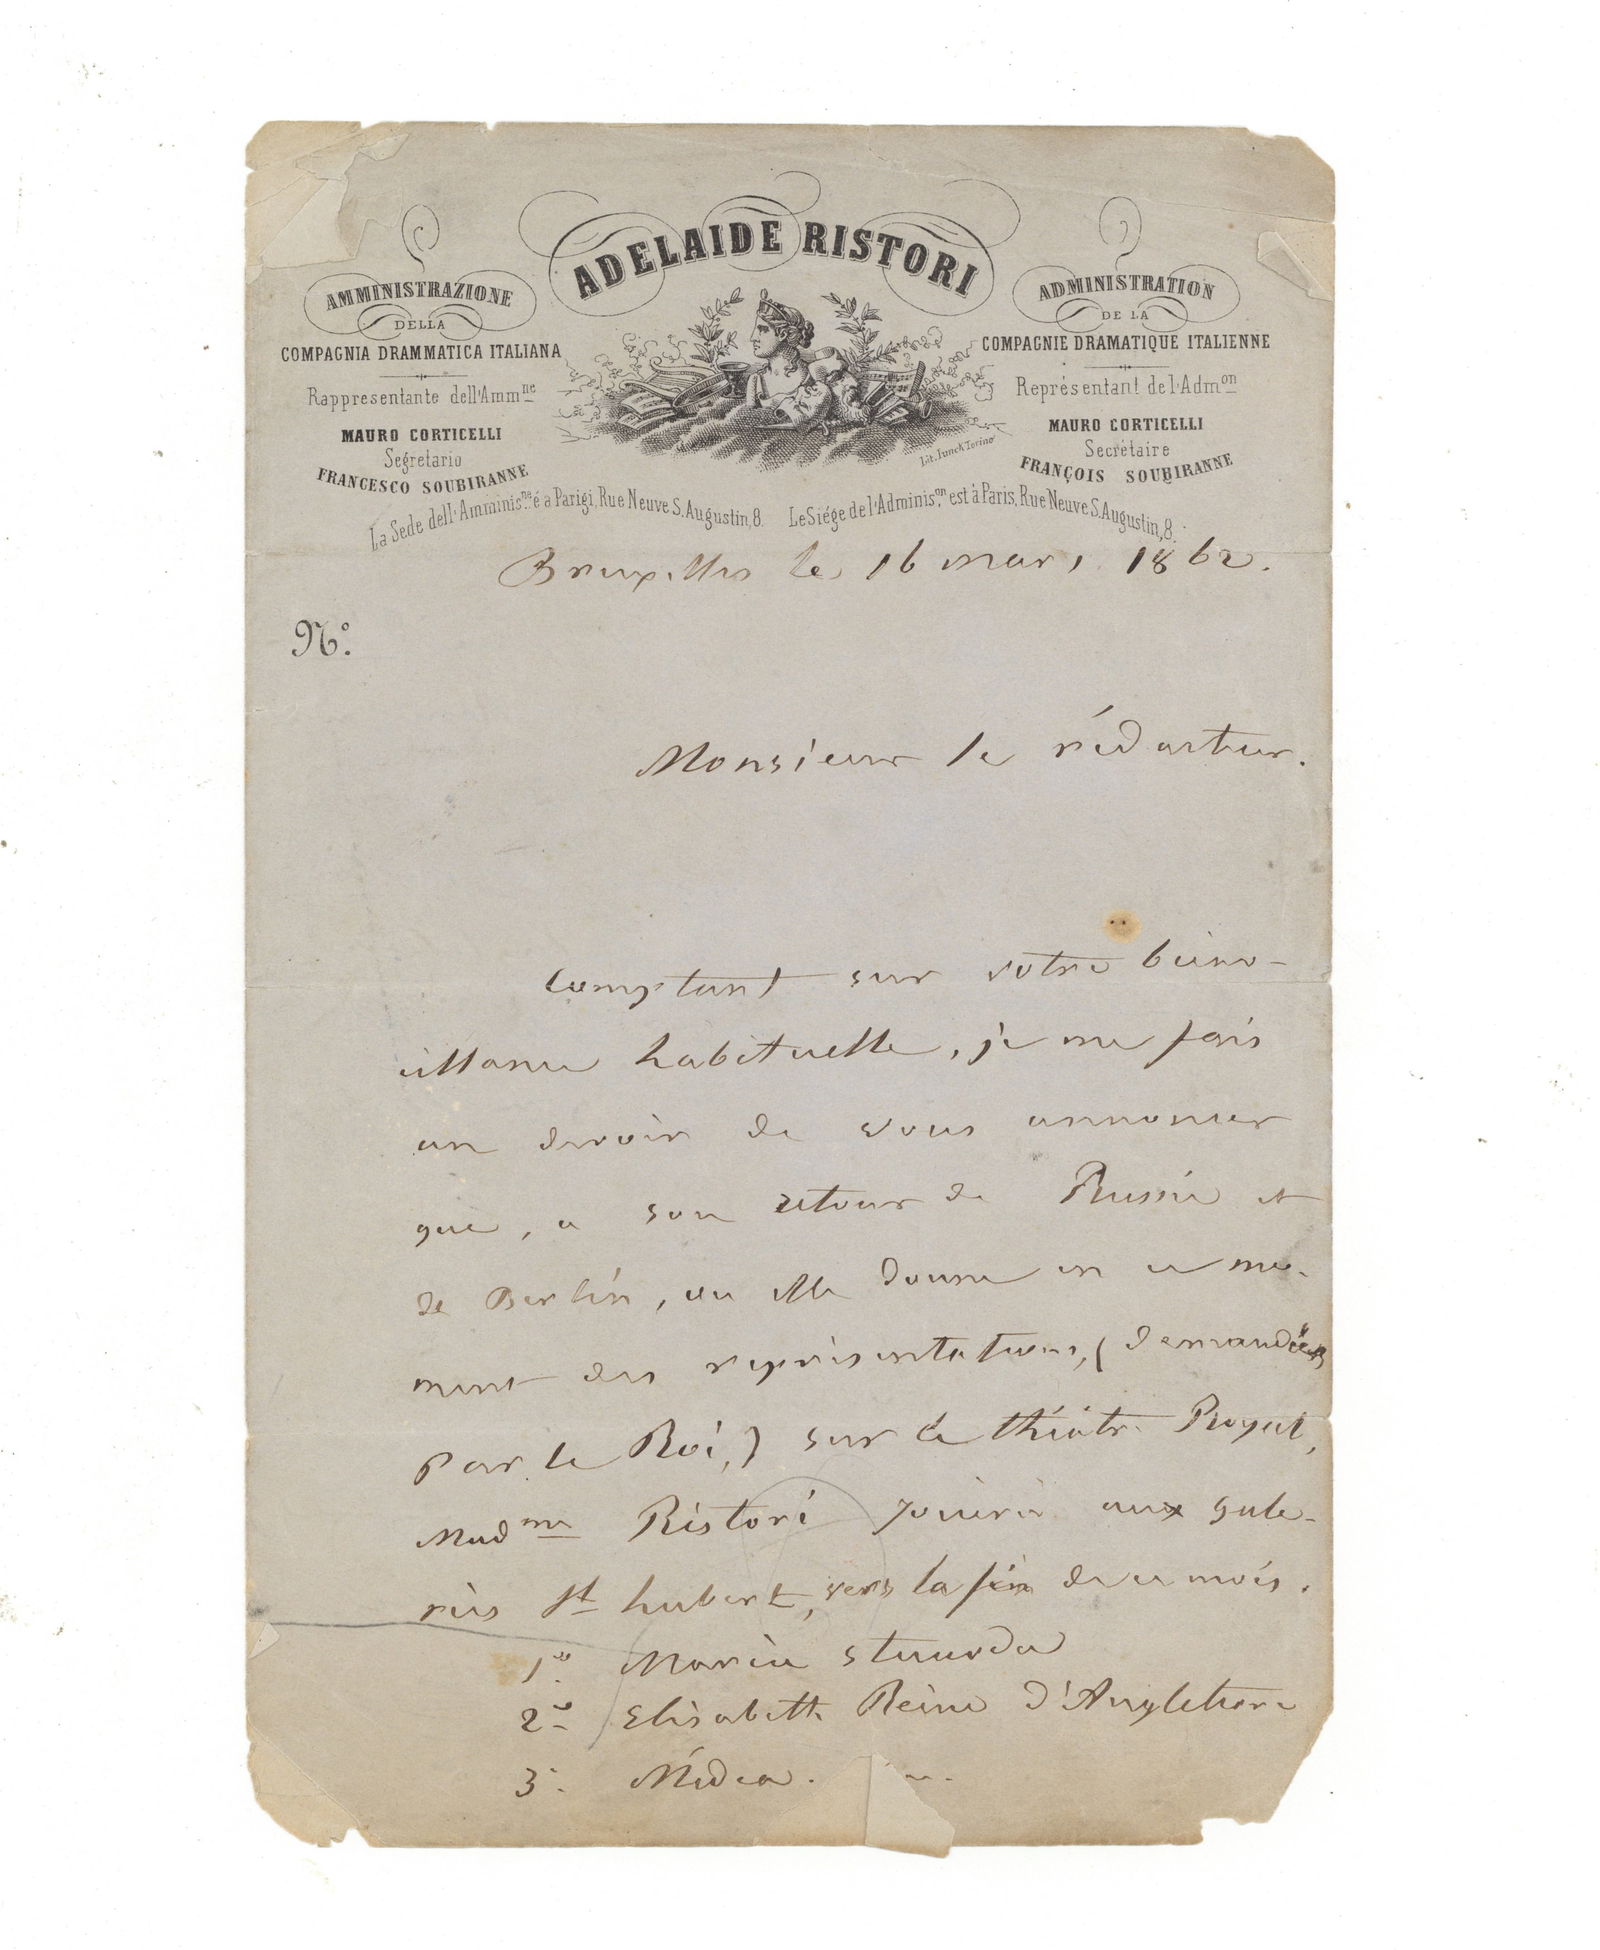 ADELAIDE RISTORI
AMMINISTRAZIONE
DELLA
COMPAGNIA DRAMMATICA ITALIANA
Rappresentante dell'Amm.ne
MAURO CORTICELLI
Segretario
FRANCESCO SOUBIRANNE
La Sede dell'Amminis.ne é a Parigi, Rue Neuve S. Augustin, 8.
ADMINISTRATION
DE LA
COMPAGNIE DRAMATIQUE ITALIENNE
Représentant de l'Adm.on
MAURO CORTICELLI
Secrétaire
FRANÇOIS SOUBIRANNE
Le Siége de l'Adminis.on est à Paris, Rue Neuve S. Augustin, 8.
Lit. Junck Torino
Bruxelles le 16 mars 1862.
N.º
Monsieur le rédacteur.
Comptant sur votre bienve-
illance habituelle, je me fais
un devoir de vous annoncer
que, a son retour de Russie et
de Berlin, ou elle donne en ce mo-
ment des représentations, (demandées
par le Roi,) sur le théâtre Royal,
Mad.me Ristori jouera aux gale-
ries St hubert, vers la fin de ce mois.
1.º Maria Stuarda
2.º Elisabeth Reine d'Angleterre
3.º Médea.